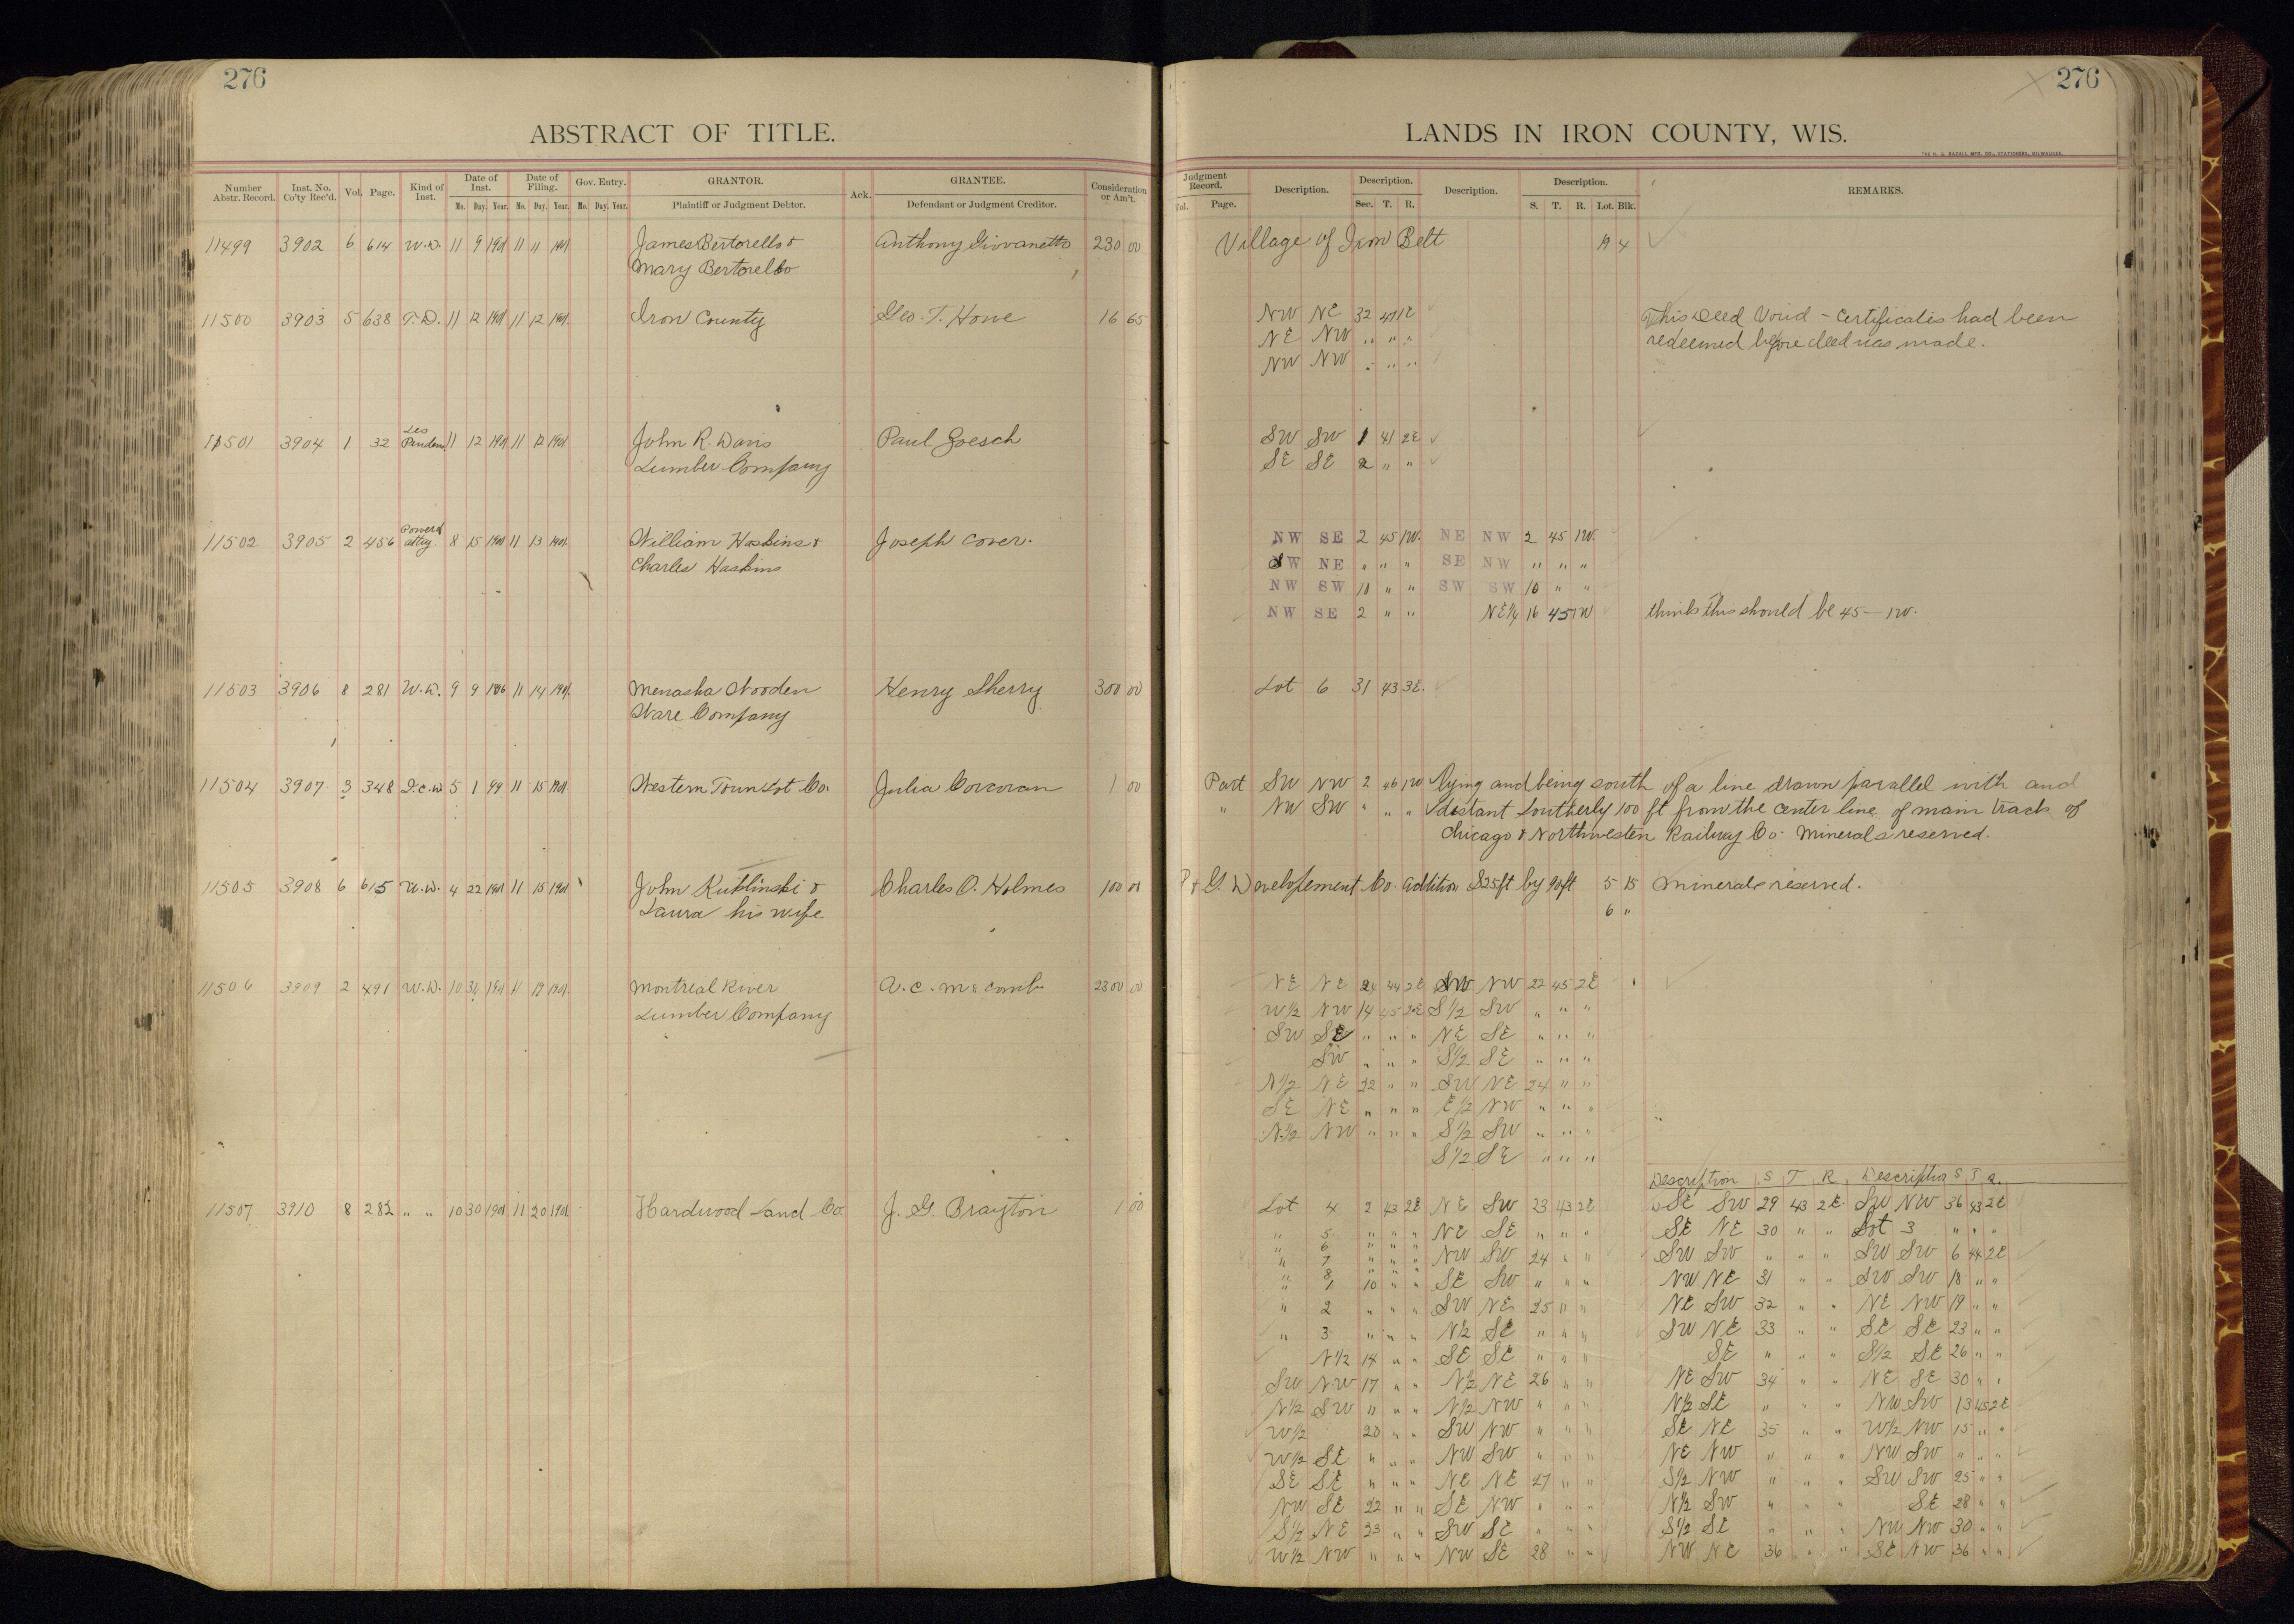 276
ABSTRACT OF TITLE.
Number Abstr. Record. Inst. No. Co'ty Rec'd. Vol. Page. Kind of Inst. Date of Inst. Mo. Day. Year. Date of Filing. Mo. Day. Year. Gov. Entry. Mo. Day. Year. GRANTOR. Plaintiff or Judgment Debtor. Ack. GRANTEE. Defendant or Judgment Creditor. Consideration or Am't.
11499 3902 6 614 W.D. 11 9 1901 11 11 1901 James Bertorello & Anthony Giovanetto 230 00
Mary Bertorello
11500 3903 5 638 T.D. 11 12 1901 11 12 1901 Iron County Geo. T. Howe 16 65
11501 3904 1 32 Les Penden 11 12 1901 11 12 1901 John R. Davis Paul Goesch
Lumber Company
11502 3905 2 456 Power of atty. 8 15 1901 11 13 1901 William Haskins & Joseph Cover.
Charles Haskins
11503 3906 8 281 W.D. 9 9 1896 11 14 1901 Menasha Wooden Henry Sherry 300 00
Ware Company
11504 3907 3 348 5 1 99 11 15 1901 Western Town Lot Co. Julia Corcoran 1 00
11505 3908 6 615 W.D. 4 22 1901 11 15 1901 John Kublinski & Charles O. Holmes 100 00
Laura his wife
11506 3909 2 491 W.D. 10 1901 11 19 1901 Montreal River A.C. McComb 2300 00
Lumber Company
11507 3910 8 282 " " 10 30 1901 11 20 1901 Hardwood Land Co. J. G. Brayton 1 00
276
LANDS IN IRON COUNTY, WIS.
Judgment Record. Vol. Page. Description. Description. Sec. T. R. Description. Description. S. T. R. Lot. Blk. REMARKS.
Village of Iron Belt 19 4
NW NE 32 47 1E This Deed Void – Certificates had been
NE NW " " " redeemed before deed was made.
NW NW " " "
SW SW 1 41 2E
SE SE 2 " "
NW SE 2 45 1W. NE NW 2 45 1W.
SW NE " " " SE NW " " "
NW SW 10 " " SW SW 10 " "
NW SE 2 " " NE1/4 16 45 1W thinks this should be 45 – 1W.
Lot 6 31 43 3E.
Part SW NW 2 46 1W lying and being south of a line drawn parallel with and
" NW SW " " " distant Southerly 100 ft from the center line of main track of
Chicago & Northwestern Railway Co. Minerals reserved.
P & G. Developement Co. addition S25ft by 90ft 5 15 Minerals reserved.
6 "
NE NE 24 44 2E SW NW 22 45 2E
W1/2 NW 14 45 2E S1/2 SW " " "
SW SE " " " NE SE " " "
SW " " " S1/2 SE " " "
N1/2 NE 32 " " SW NE 24 " "
SE NE " " " E1/2 NW " " "
N1/2 NW " " " S1/2 SW " " "
S1/2 SE " " "
Description S T R Description S T R.
Lot 4 2 43 2E NE SW 23 43 2E SE SW 29 43 2E. SW NW 36 43 2E
" 5 " " " NE SE " " " SE NE 30 " " Lot 3 " " "
" 6 " " "
" 7 " " " NW SW 24 " " SW SW " " " SW SW 6 44 2E
" 8 " " "
" 1 10 " " SE SW " " " NW NE 31 " " SW SW 18 " "
" 2 " " " SW NE 25 " " NE SW 32 " " NE NW 19 " "
" 3 " " " N1/2 SE " " " SW NE 33 " " SE SE 23 " "
N1/2 14 " " SE SE " " " SE " " " S1/2 SE 26 " "
SW NW 17 " " N1/2 NE 26 " " NE SW 34 " " NE SE 30 " "
N1/2 SW " " " N1/2 NW " " " N1/2 SE " " " NW SW 13 45 2E
W1/2 20 " " SW NW " " " SE NE 35 " " W1/2 NW 15 " "
W1/2 SE " " " NW SW " " " NE NW " " " NW SW " " "
SE SE " " " NE NE 27 " " S1/2 NW " " " SW SW 25 " "
NW SE 22 " " SE NW " " " N1/2 SW " " " SE 28 " "
S1/2 NE 23 " " SW SE " " " S1/2 SE " " " NW NW 30 " "
W1/2 NW " " " NW SE 28 " " NW NE 36 " " SE NW 36 " "